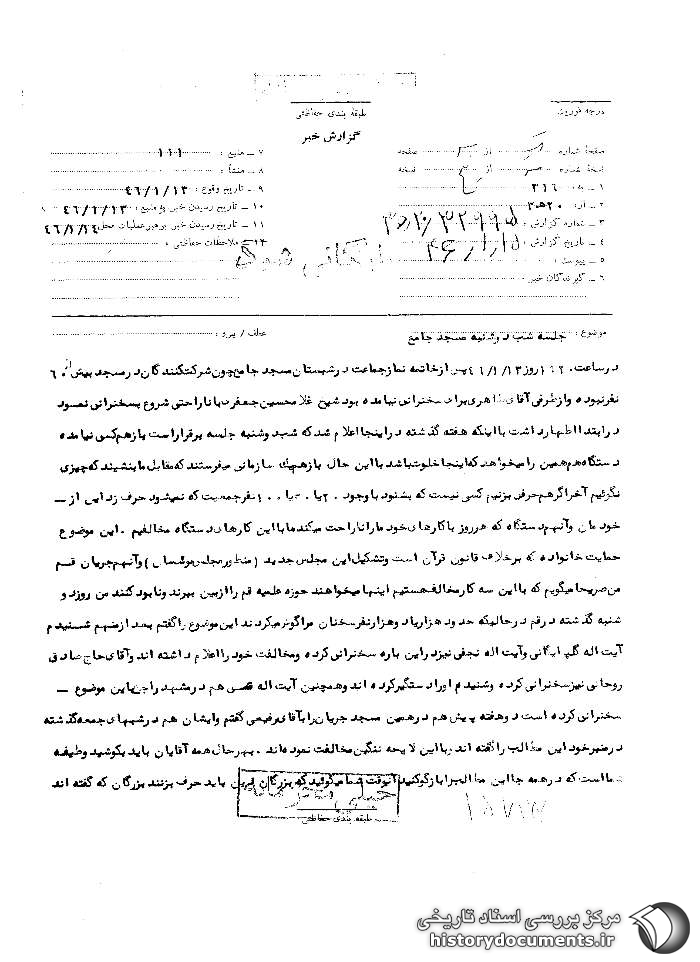 درجه فوریت
طبقه بندی حفاظتی
گزارش خبر
صفحهٔ شماره از صفحه
نسخهٔ شماره از نسخه
۱ ـ به: ۳۱۶
۲ ـ از: ۲۰ه۳
۳ ـ شماره گزارش:
۴ ـ تاریخ گزارش:
۵ ـ پیوست:
۶ ـ گیرندگان خبر:
۷ ـ منبع: ۱۱۱
۸ ـ منشأ:
۹ ـ تاریخ وقوع: ۴۶/۱/۱۳
۱۰ ـ تاریخ رسیدن خبر به منبع: ۴۶/۱/۱۳
۱۱ ـ تاریخ رسیدن خبر به رهبر عملیات محل: ۴۶/۱/۱۴
۱۲ ـ ملاحظات حفاظتی:
موضوع: جلسه شب دوشنبه مسجد جامع
عطف / پیرو:
در ساعت روز ۴۶/۱/۱۳ پس از خاتمه نماز جماعت در شبستان مسجد جامع چون شرکت کنندگان در مسجد بیش از ۶۰
نفر نبوده و از طرفی آقای طاهری برای سخنرانی نیامده بود شیخ غلامحسین جعفری با ناراحتی شروع بسخنرانی نمود
در ابتدا اظهار داشت با اینکه هفته گذشته در اینجا اعلام شد که شب دوشنبه جلسه برقرار است باز هم کسی نیامده
دستگاه هم همین را میخواهد که اینجا خلوت باشد با این حال باز هم یک سازمانی میفرستند که مقابل ما بنشیند که چیزی
نگوئیم آخر اگر هم حرف بزنیم کسی نیست که بشنود با وجود ۲۰ یا ۳۰ یا نفر جمعیت که نمیشود حرف زد این از ـ
خودمان و آنهم دستگاه که هر روز با کارهای خود ما را ناراحت میکند ما با این کارهای دستگاه مخالفیم . این موضوع
حمایت خانواده که برخلاف قانون قرآن است و تشکیل این مجلس جدید (منظور مجلس موسسان) و آنهم جریان قم
من صریحا میگویم که با این سه کار مخالف هستیم اینها میخواهند حوزه علمیه قم را از بین ببرند و نابود کنند من روز دو
شنبه گذشته در قم در حالیکه حدود هزار یا دو هزار نفر سخنان مرا گوش میکردند این موضوع را گفتم بعد از منهم شنیدم
آیت اله گلپایگانی و آیت اله نجفی نیز در این باره سخنرانی کرده و مخالفت خود را اعلام داشته اند و آقای حاج صادق
روحانی نیز سخنرانی کرده و شنیدم او را دستگیر کرده اند و همچنین آیت اله قمی هم در مشهد راجع باین موضوع ـ
سخنرانی کرده است و هفته پیش هم در همین مسجد جریان را بآقای مرتضی گفتم و ایشان هم در شبهای جمعه گذشته
در منبر خود این مطالب را گفته اند و با این لایحه ننگین مخالفت نموده اند . بهر حال همه آقایان باید بکوشید وظیفه
شما است که در همه جا این مطالب را بازگو کنید آنوقت شما میگوئید که بزرگان دین باید حرف بزنند بزرگان که گفته اند
طبقه بندی حفاظتی
مرکز بررسی اسناد تاریخی
historydocuments.ir